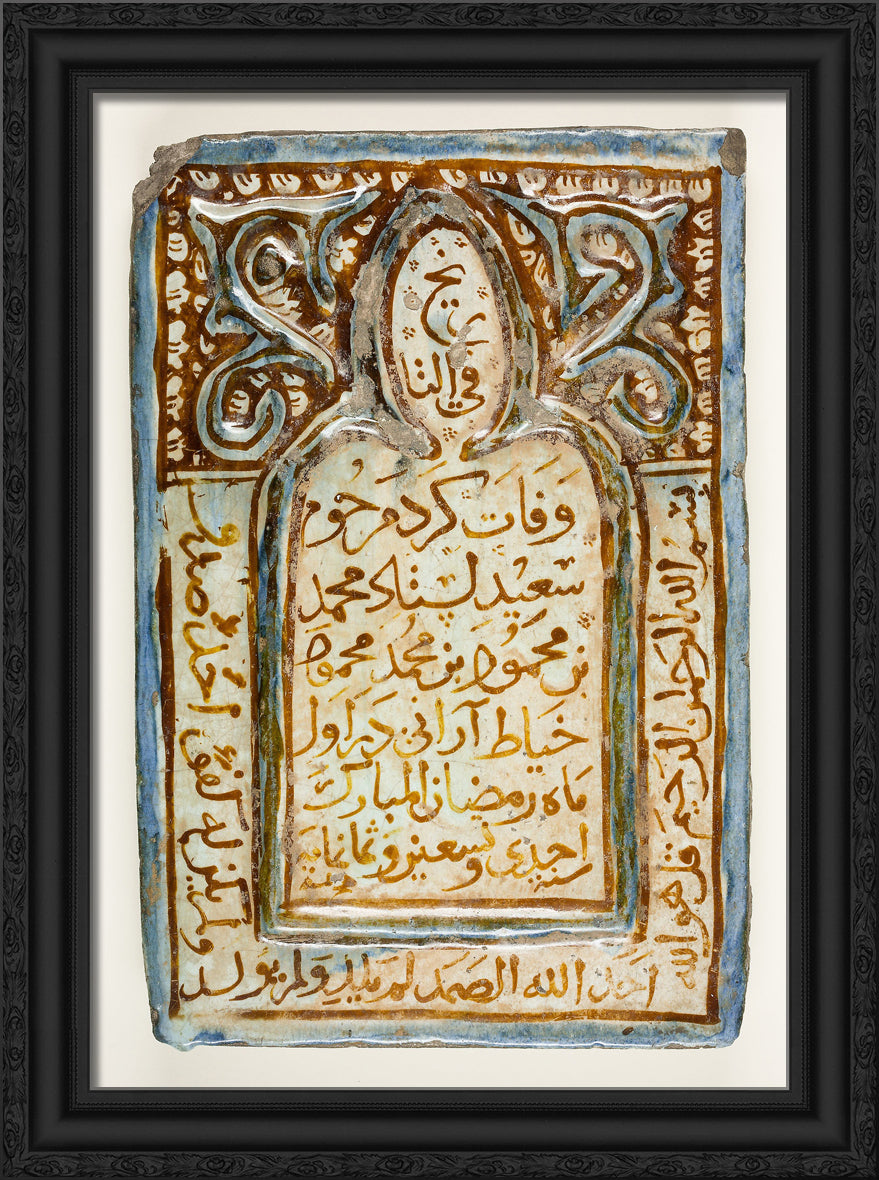 في التا
ريخ
وفات كرد مرحوم
سعيد استاد محمد
بن محمود بن محمد محمود
خياط آراني در اول
ماه رمضان المبارك
سنة احدى و تسعين و ثمانماية
بسم الله الرحمن الرحيم قل هو الله
احد الله الصمد لم يلد و لم يولد
و لم يكن له كفوا احد صدق